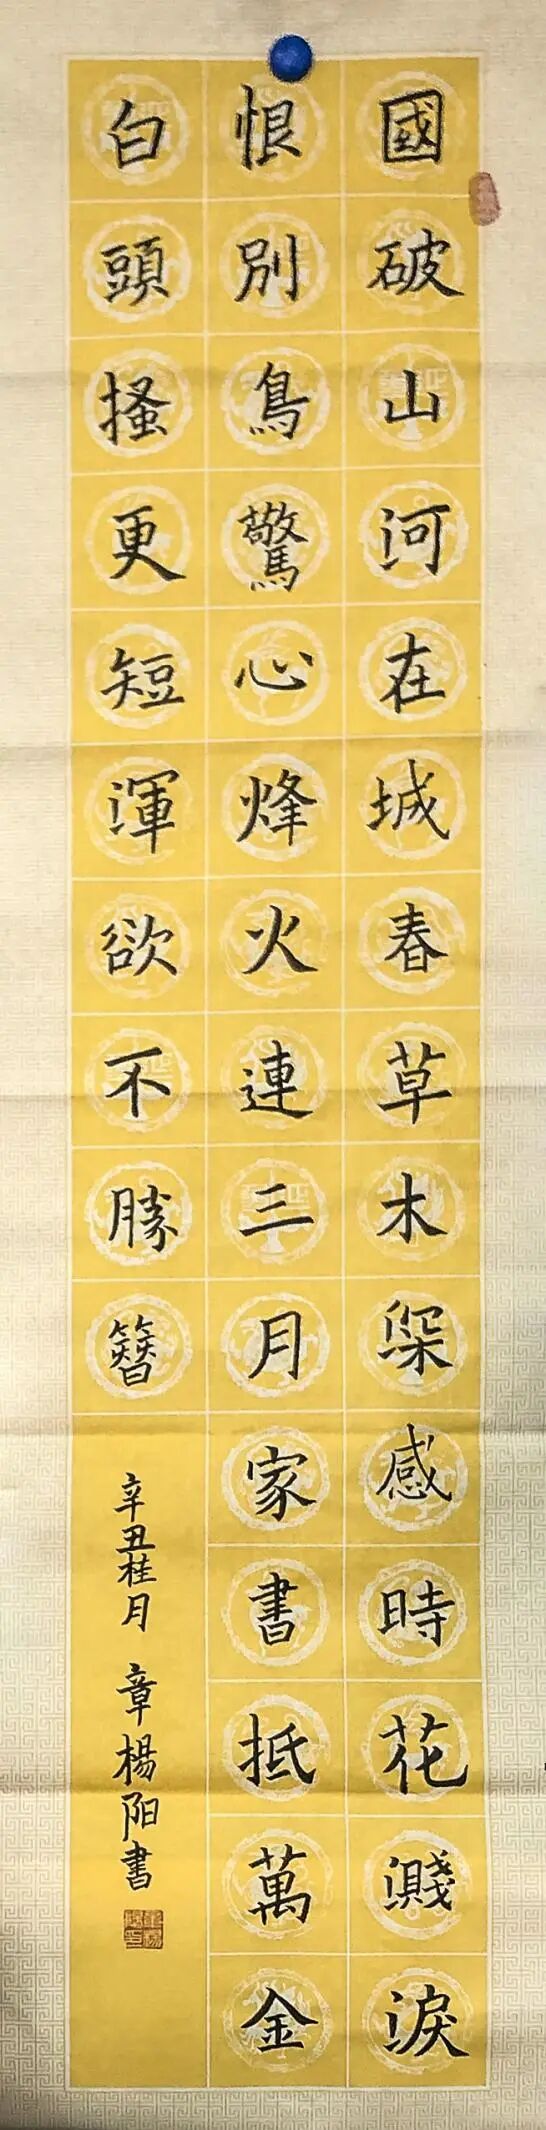 國破山河在城春草木深感時花濺淚
恨別鳥驚心烽火連三月家書抵萬金
白頭搔更短渾欲不勝簪
辛丑桂月 章楊阳書